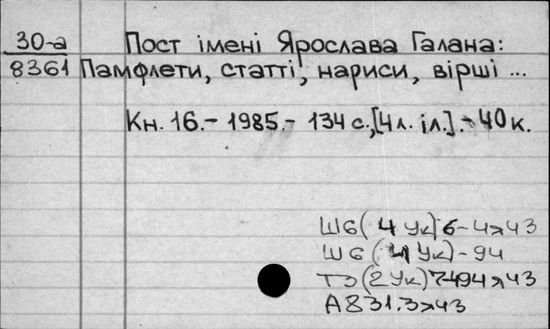 30-а Пост імені Ярослава Галана:
8361 Памфлети, статті, нариси, вірші ...
Кн. 16.- 1985.- 134 с.,[4л. іл.].- 40к.
Ш6(4Ук)6-4я43
Ш6(4Ук)-94
ТЗ(2Ук)7494я43
А831.3я43